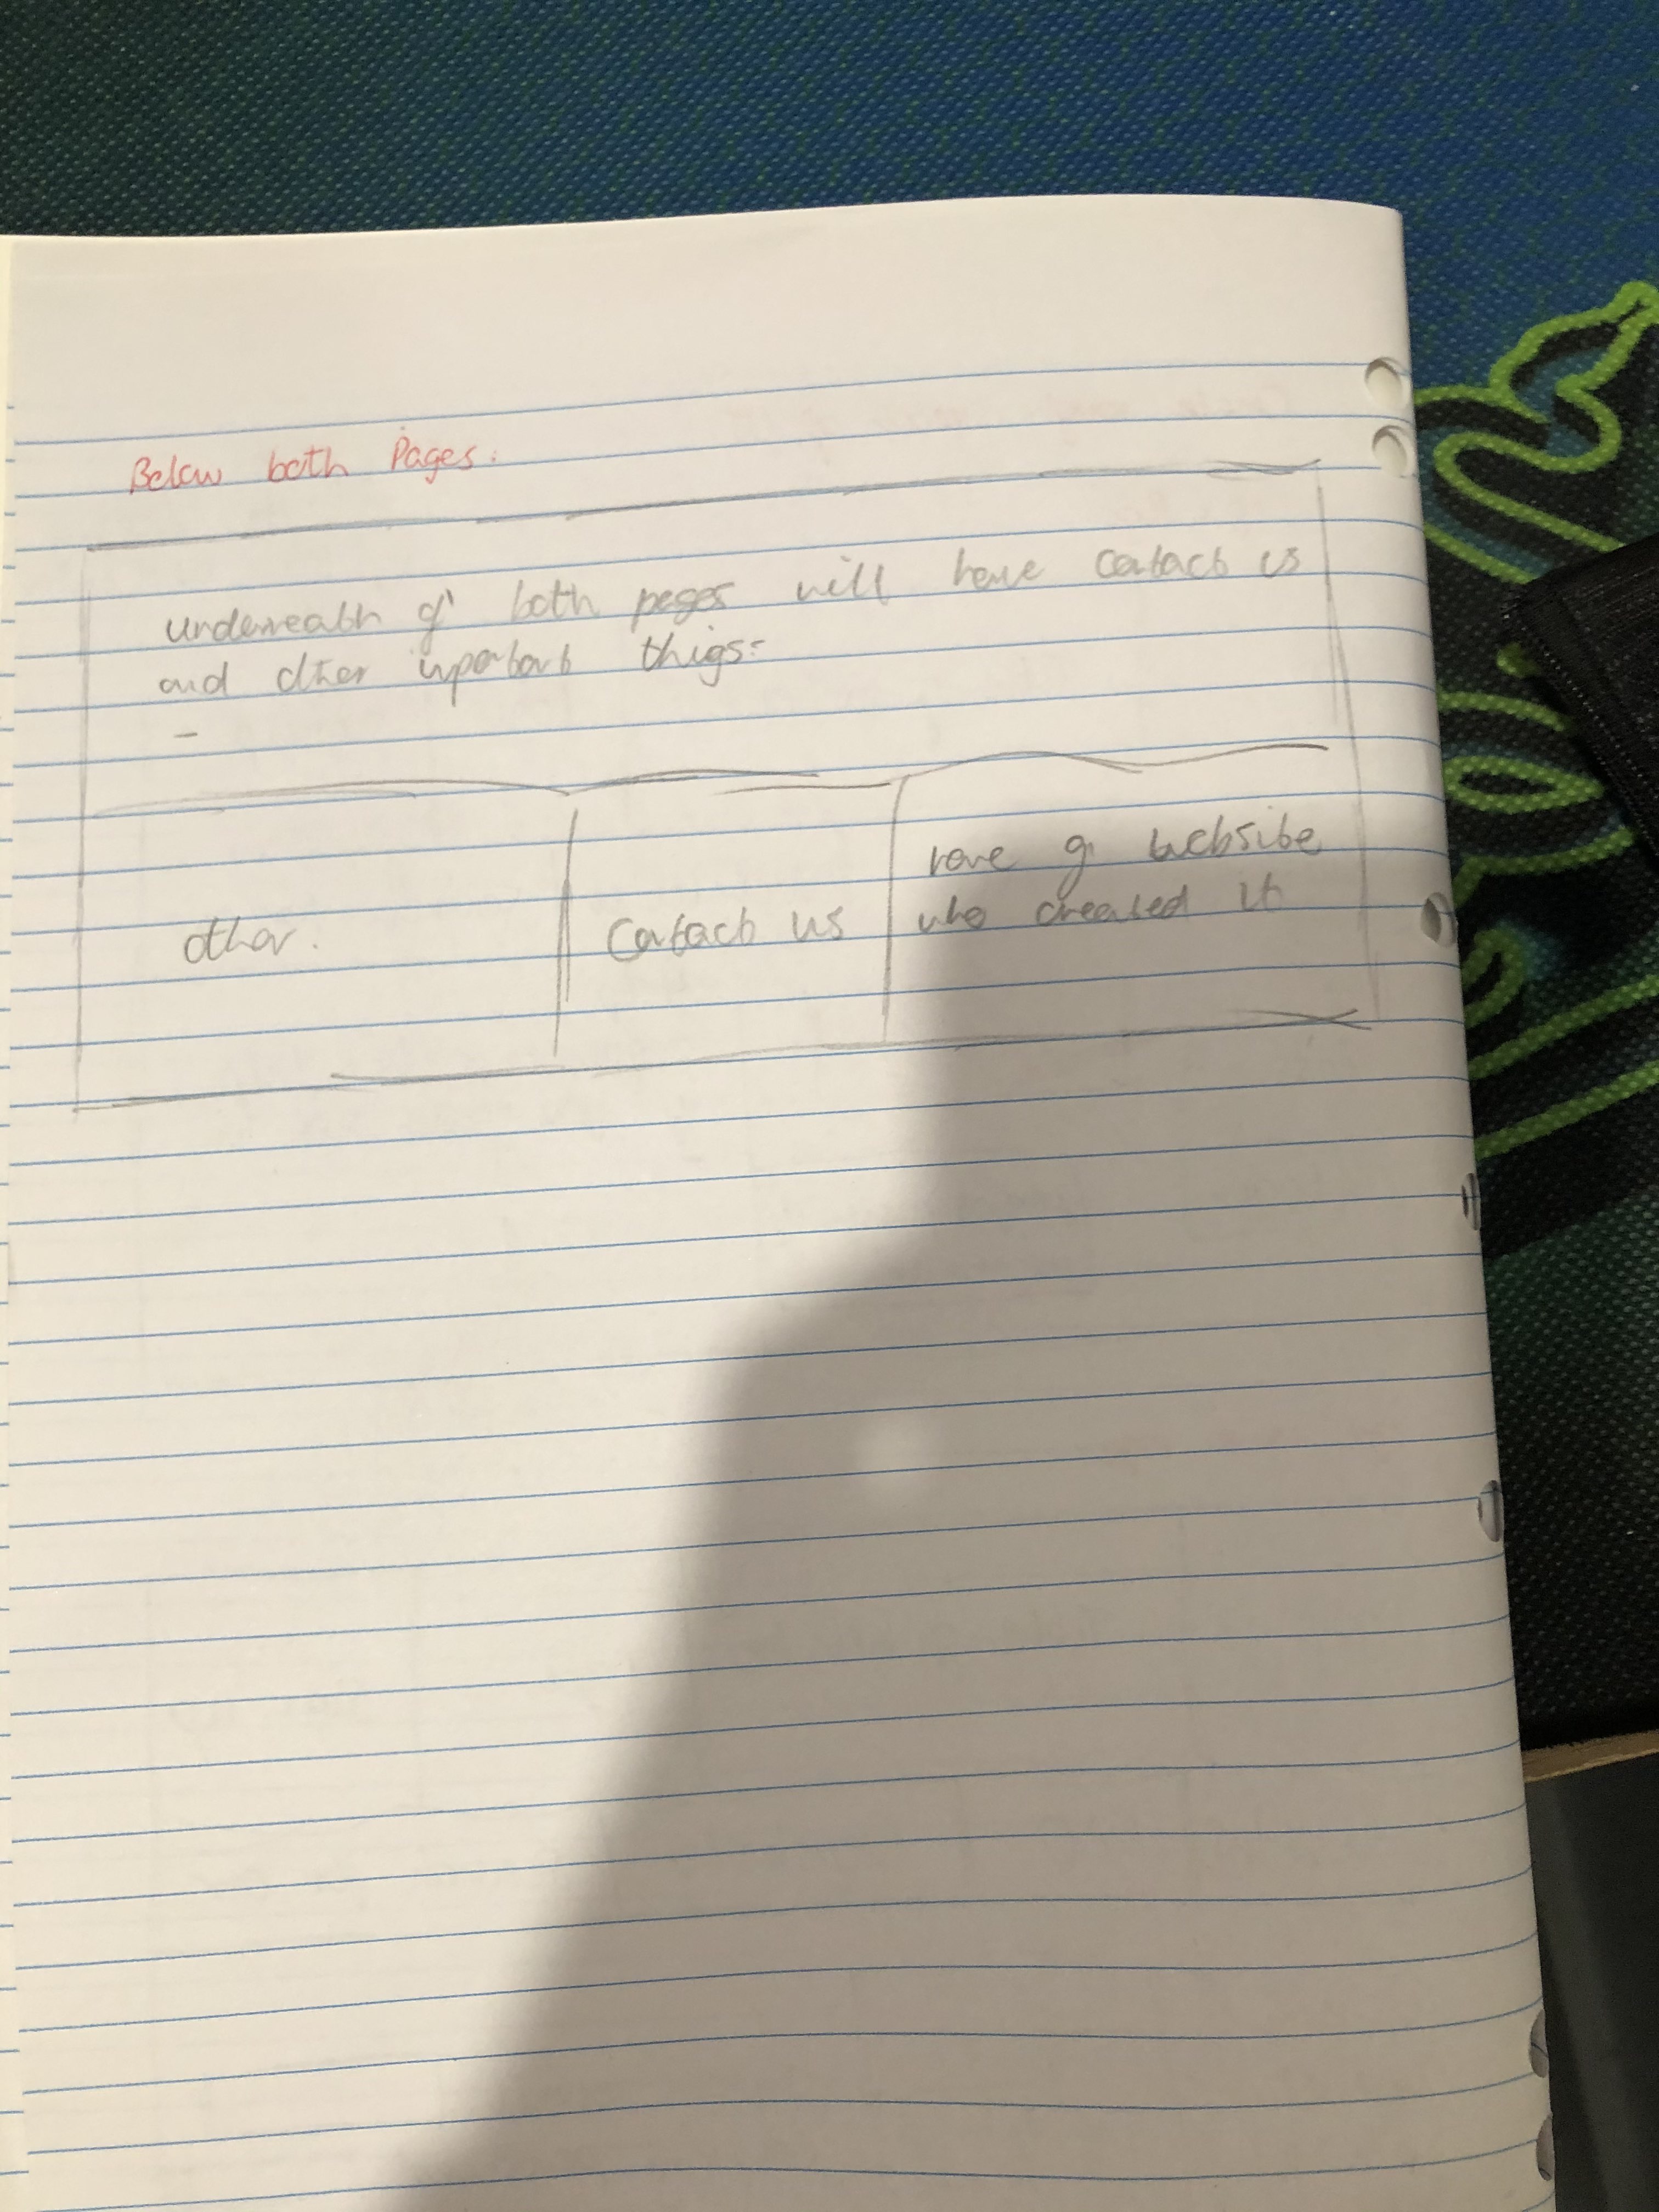 Below both Pages.
underneath of both pages will have contact us
and other important things:
-
other.
Contact us
name of website
who created it